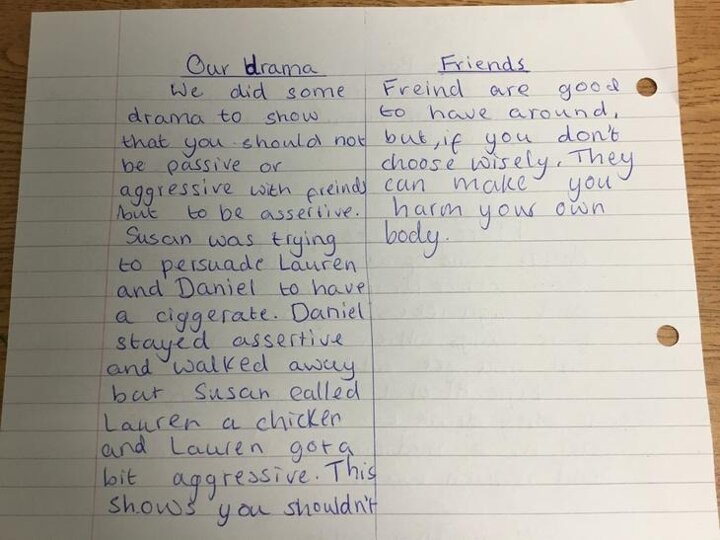 Our drama
We did some
drama to show
that you should not
be passive or
aggressive with freinds
but to be assertive.
Susan was trying
to persuade Lauren
and Daniel to have
a ciggerate. Daniel
stayed assertive
and walked away
but Susan called
Lauren a chicken
and Lauren got a
bit aggressive. This
shows you shouldn't
Friends
Freind are good
to have around,
but, if you don't
choose wisely. They
can make you
harm your own
body.